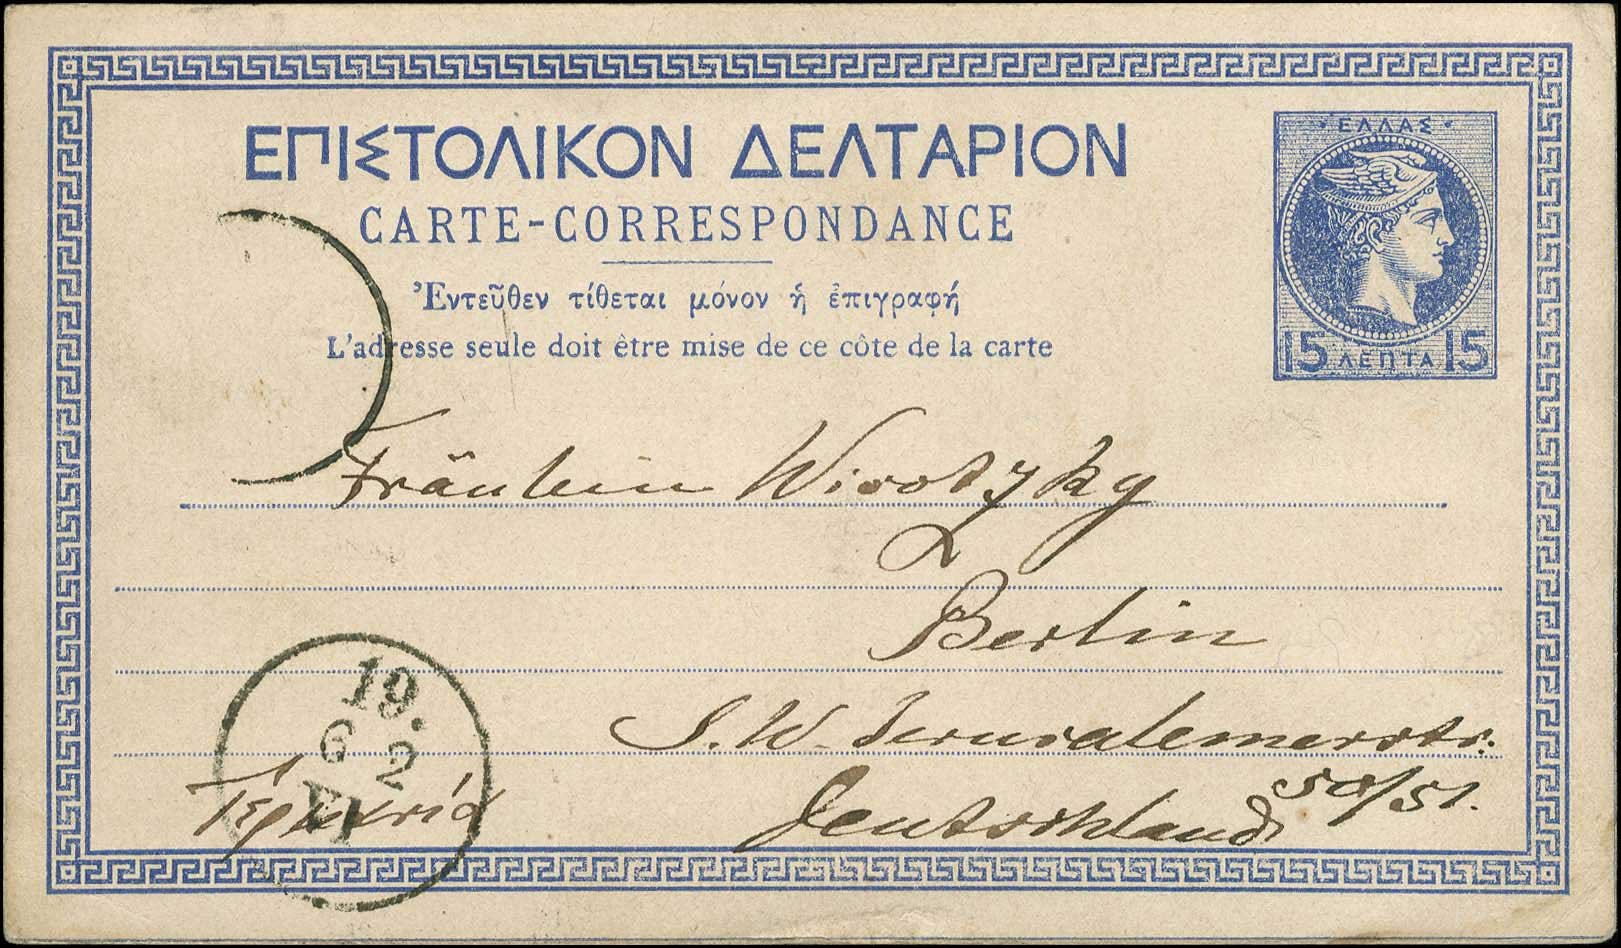 ΕΠΙΣΤΟΛΙΚΟΝ ΔΕΛΤΑΡΙΟΝ
CARTE-CORRESPONDANCE
Ἐντεῦθεν τίθεται μόνον ἡ ἐπιγραφή
L'adresse seule doit être mise de ce côte de la carte
ΕΛΛΑΣ
15 ΛΕΠΤΑ 15
Fräulein Wissotzky
Berlin
S. W. Jerusalemerstr.
50/51.
Deutschland
Γερμανία
19.
6 2
VI